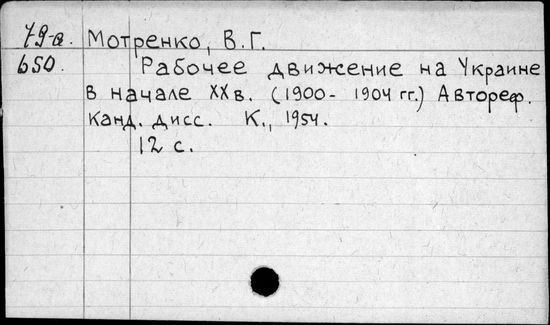 79-а. Мотренко, В.Г.
650. Рабочее движение на Украине
в начале XXв. (1900- 1904 гг.) Автореф.
канд. дисс. К., 1954.
12 с.